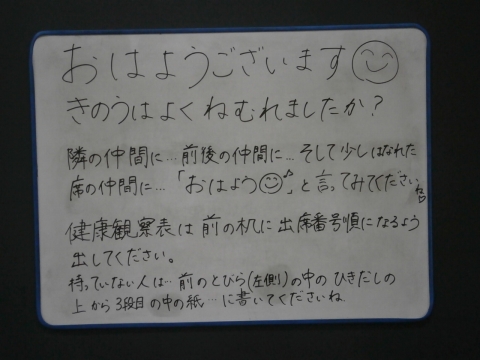 おはようございます
きのうはよくねむれましたか?
隣の仲間に…前後の仲間に…そして少しはなれた
席の仲間に…「おはよう♪」と言ってみてくださいね
健康観察表は前の机に出席番号順になるよう
出してください。
持っていない人は…前のとびら(左側)の中のひきだしの
上から3段目の中の紙…に書いてくださいね